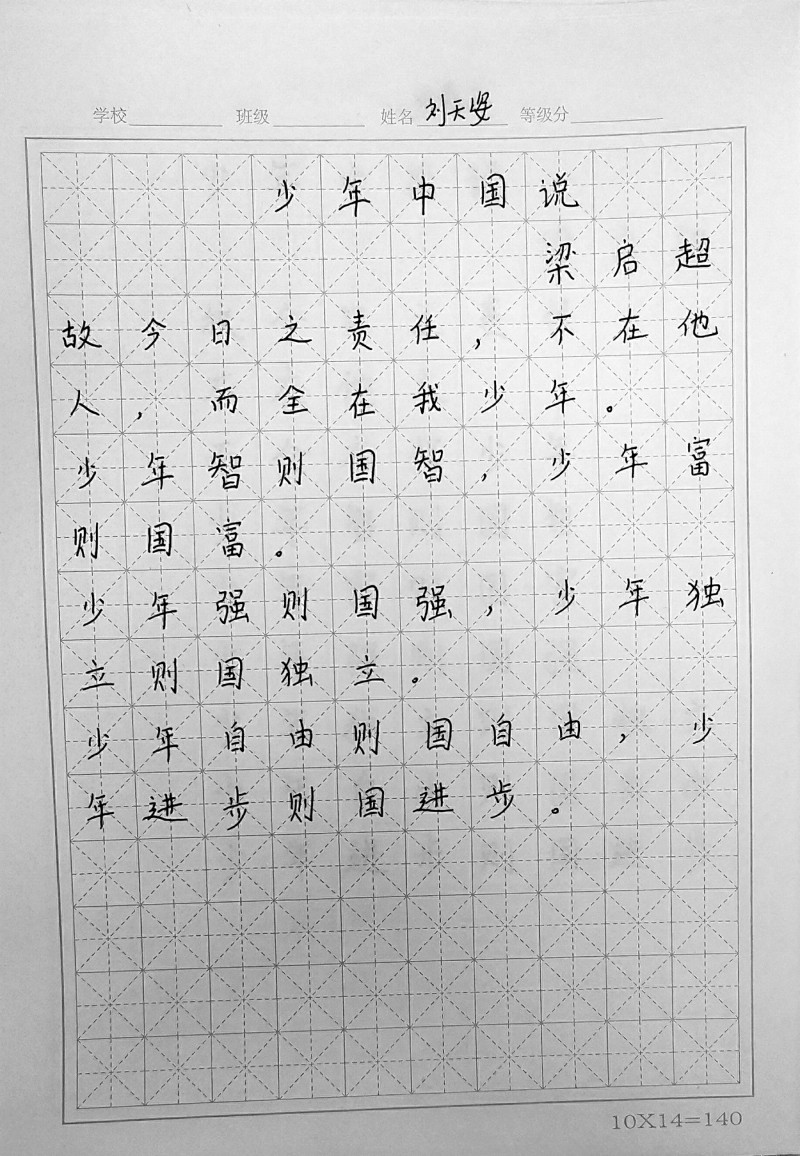 学校 班级 姓名 刘天安 等级分
少年中国说
梁启超
故今日之责任，不在他
人，而全在我少年。
少年智则国智，少年富
则国富。
少年强则国强，少年独
立则国独立。
少年自由则国自由，少
年进步则国进步。
10X14=140